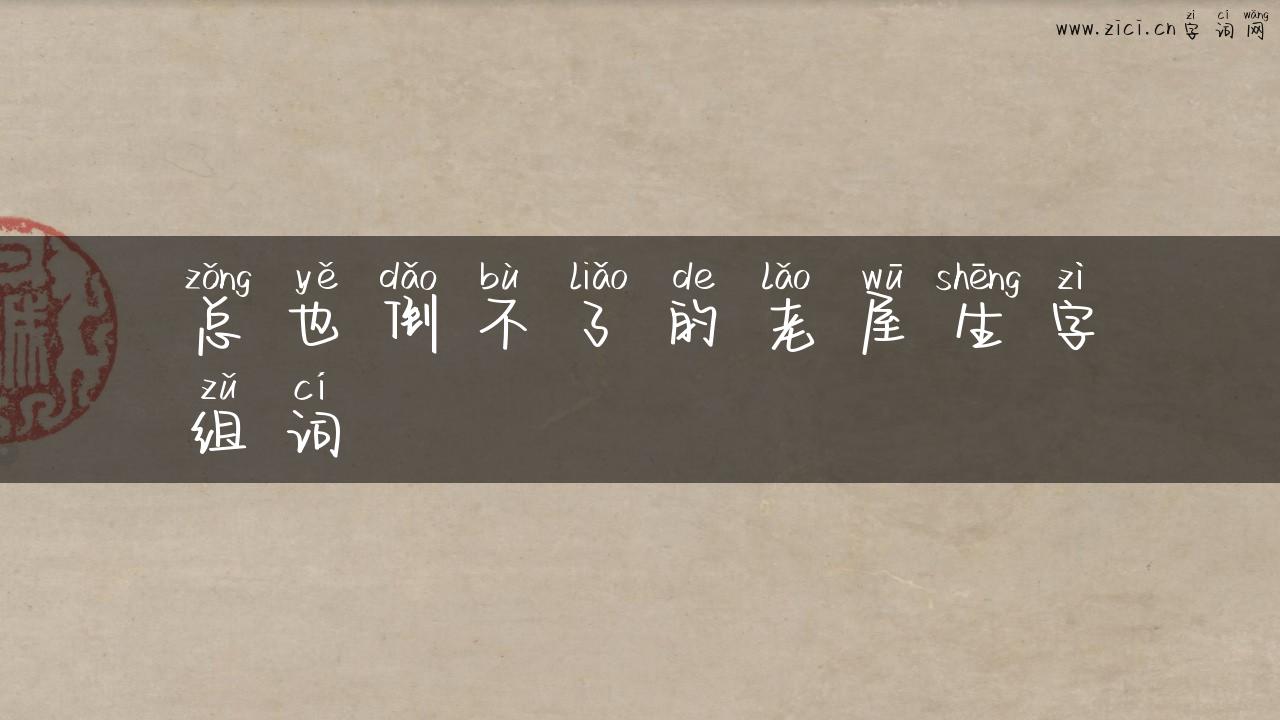 zì cí wǎng
www.zici.cn 字词网
zǒng yě dǎo bù liǎo de lǎo wū shēng zì
总也倒不了的老屋生字
zǔ cí
组词